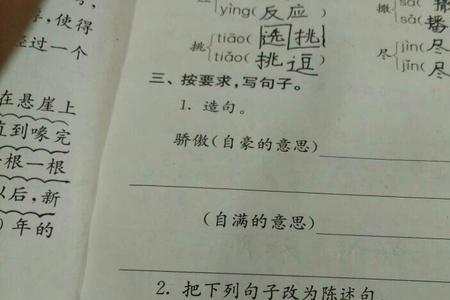 yìng(反应)
tiāo(选挑)
挑
tiǎo(挑逗)
撒
sā(撒
sǎ(播
尽
jìn(尽
jǐn(尽
三、按要求,写句子。
1. 造句。
骄傲(自豪的意思)
(自满的意思)
2. 把下列句子改为陈述句。
序,使得
经过一个
在悬崖上
直到喙完
一根一根
以后,新
)年的